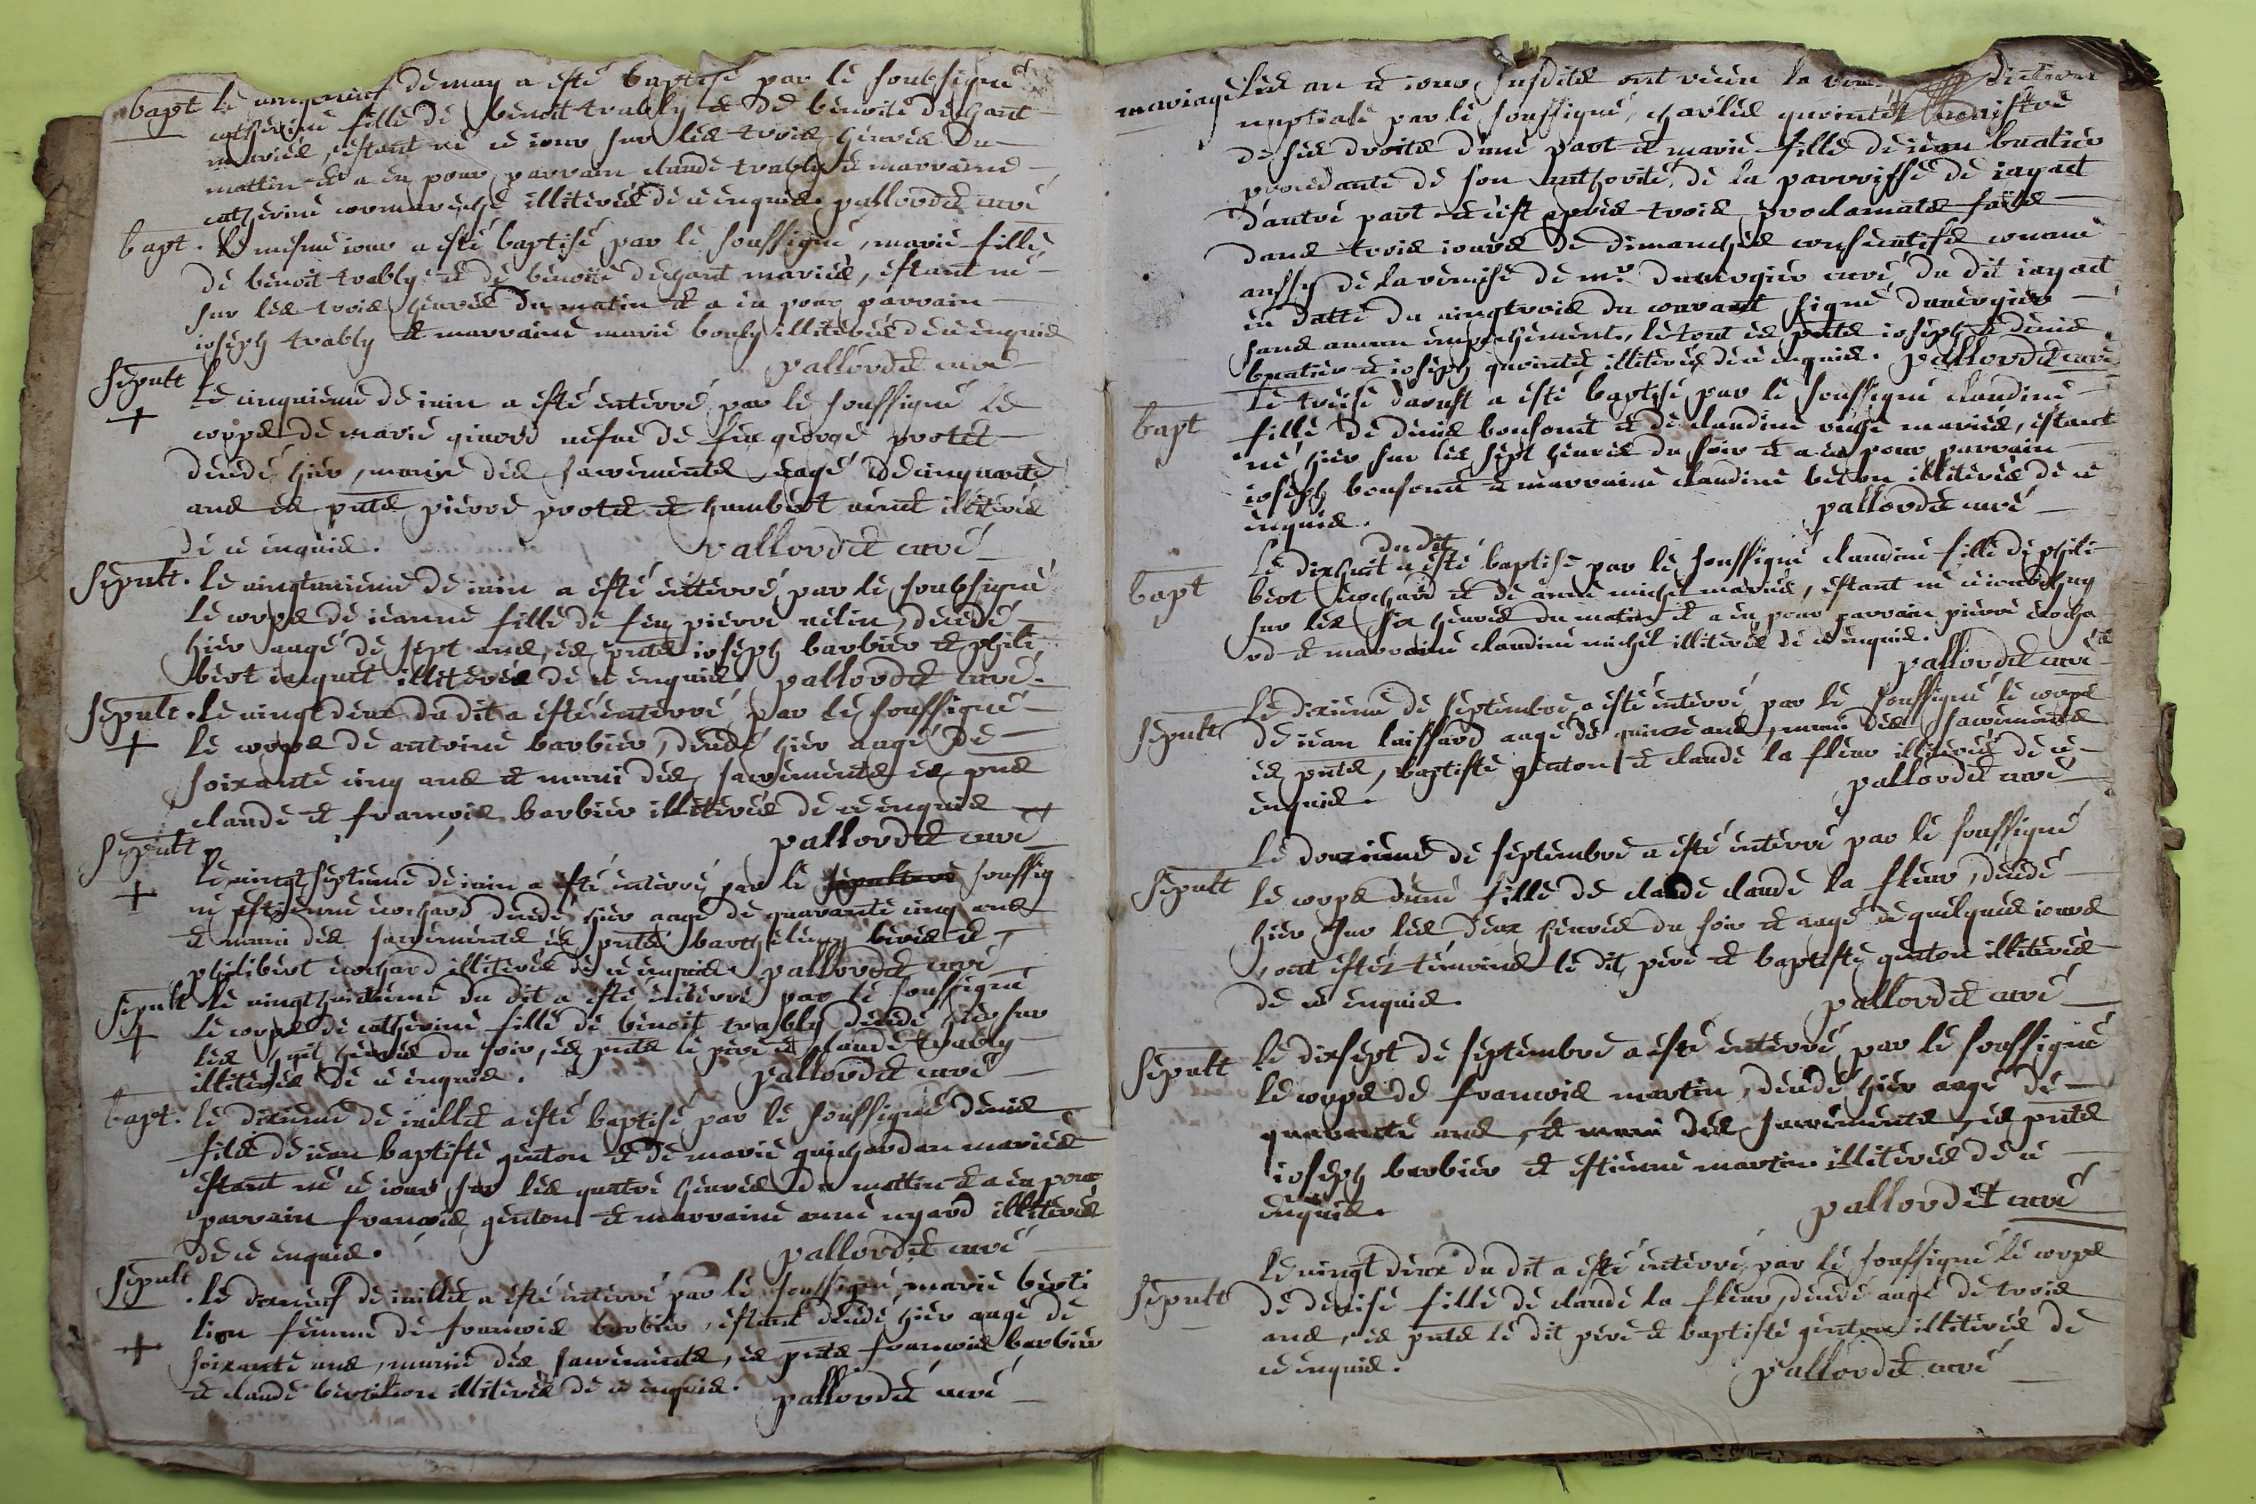 bapt le vingtneuf de may a esté baptisé par le soubsigné
catherine fille de benoit trably et de benoite dechant
mariés, estant né ce iour sur les trois heures du
mattin et a eu pour parrain claude trably et marraine
catherine illiterés de ce enquis. pallordet curé
bapt. le mesme iour a esté baptisé par le soussigné, marie fille
de benoit trably et de benoite dechant mariés, estant né
sur les trois heures du matin et a eu pour parrain
ioseph trably et marraine marie bouly illiterés de ce enquis
pallordet curé
sepult
le cinquieme de iuin a esté enterré par le soussigné le
corps de marie girord vefve de feu george protet
decedé hier, munie des sacrements eagé de cinquante
ans es pnts pierre protet et humbert illiterés
de ce enquis. pallordet curé
sepult. le vingtunieme de iuin a esté enterré par le soubsigné
le corps de ieanne fille de feu pierre velin, decedé
hier aagé de sept ans, es pnts ioseph barbier et phili
bert iaquet illiterés de ce enquis. pallordet curé.
sepult. le vingt deux du dit a esté enterré par le soussigné
le corps de antoine barbier, decedé hier aagé de
soixante cinq ans et muni des sacrements es pns
claude et francois barbier illiterés de ce enquis
pallordet curé
sepult
le vingtseptieme de iuin a esté enterré par le sepulture soussig
né estienne cochard decedé hier aagé de quarante cinq ans
et muni des sacrements es pnts barthelemy et
philibert cochard illiterés de ce enquis. pallordet curé
sepult le vingthuitieme du dit a esté enterré par le soussigné
le corps de catherine fille de benoit trably decedé hier sur
les huit heures du soir, es pnts le pere et claude trably
illiterés de ce enquis. pallordet curé
bapt. le dixieme de iuillet a esté baptisé par le soussigné denis
fils de iean baptiste genton et de marie guichardan mariés
estant né ce iour sur les quatre heures du mattin et a eu pour
parrain francois genton et marraine anne illiterés
de ce enquis. pallordet curé
sepult
le dixneuf de iuillet a esté enterré par le soussigné marie berti
lion femme de francois barbier, estant decedé hier aagé de
soixante ans, munie des sacrements, es pnts francois barbier
et claude bertilion illiterés de ce enquis. pallordet curé
mariage les an et iour susdits ont receu la
nuptiale par le soussigné, charles quointet
de ses droits d'une part et marie fille de iean buatier
procedante de son authorité, de la parroisse de iayat
d'autre part et c'est apres trois proclamats faits
dans trois iours de dimanches consecutifs comme
aussy de la remise de mr. duvergier curé du dit iayat
en datte du vingtrois du courant signé duvergier
sans aucun empechement, le tout es pnts ioseph et denis
buatier et ioseph quointet illiterés de ce enquis. pallordet curé
bapt
le treise d'aoust a esté baptisé par le soussigné claudine
fille de denis bonsont et de claudine mariés, estant
né hier sur les sept heures du soir et a eu pour parrain
ioseph bonsont et marraine claudine illiterés de ce
enquis. pallordet curé
du dit
bapt le dixhuit a esté baptisé par le soussigné claudine fille de phili
bert cochard et de anne michel mariés, estant né ce
sur les six heures du matin et a eu pour parrain pierre cocha
rd et marraine claudine michel illiterés de ce enquis.
pallordet curé
sepult
le dixieme de septembre a esté enterré par le soussigné le corps
de iean laissard aagé de quinze ans, muni des sacrements
es pnts, baptiste genton et claude la fleur illiterés de ce
enquis. pallordet curé
sepult
le douzieme de septembre a esté enterré par le soussigné
le corps d'une fille de claude claude la fleur, decedé
hier sur les deux heures du soir et aagé de quelques iours
ont estés temoins le dit pere et baptiste genton illiterés
de ce enquis. pallordet curé
sepult
le dixsept de septembre a esté enterré par le soussigné
le corps de francois martin, decedé hier aagé de
quarante ans, et muni des sacrements, es pnts
ioseph barbier et estienne martin illiterés de ce
enquis. pallordet curé
sepult
le vingt deux du dit a esté enterré par le soussigné le corps
de denise fille de claude la fleur, decedé aagé de trois
ans, es pnts le dit pere et baptiste genton illiterés de
ce enquis. pallordet curé